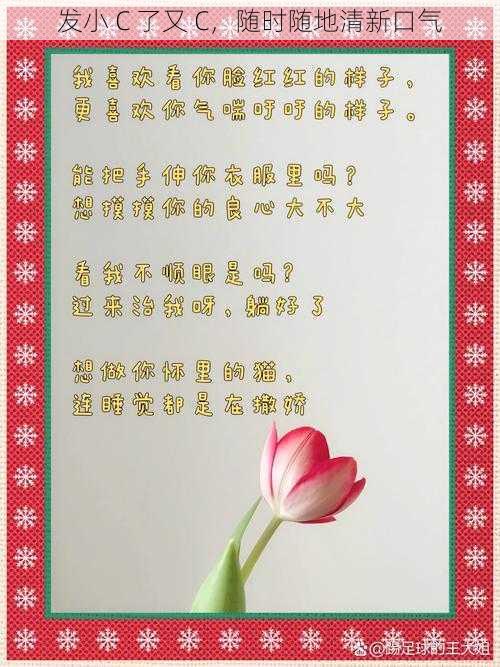 发小 C 了又 C，随时随地清新口气
我喜欢看你脸红红的样子，
更喜欢你气喘吁吁的样子。
能把手伸你衣服里吗？
想摸摸你的良心大不大
看我不顺眼是吗？
过来治我呀，躺好了
想做你怀里的猫，
连睡觉都是在撒娇
@踢足球的王大姐